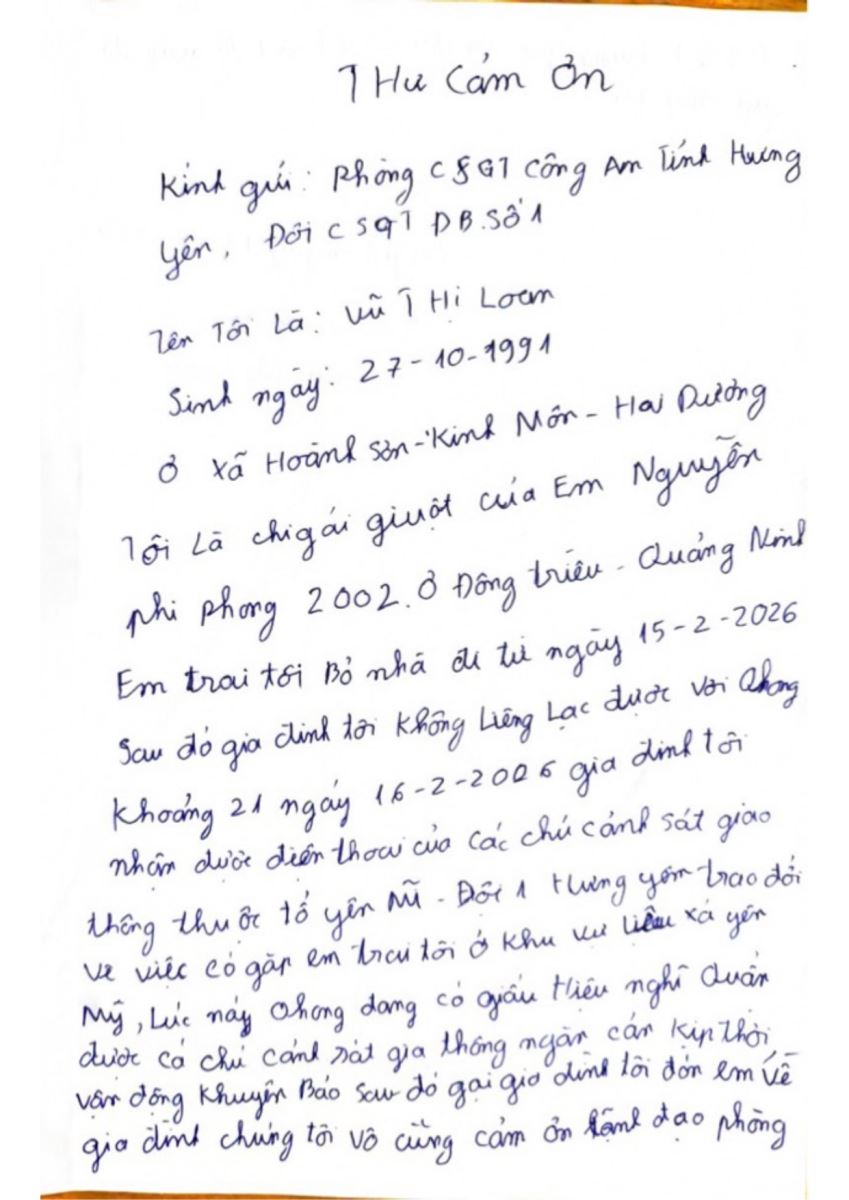 THƯ CẢM ƠN
Kính gửi: Phòng CSGT Công An Tỉnh Hưng
Yên, Đội CSGT ĐB.Số 1
Tên Tôi Là: Vũ THị Loan
Sinh ngày: 27-10-1991
Ở Xã Hoành Sơn - Kinh Môn - Hải Dương
Tôi Là chị gái giuột của Em Nguyễn
phi phong 2002. Ở Đông triều - Quảng Ninh
Em trai tôi Bỏ nhà đi từ ngày 15-2-2026
Sau đó gia đình tôi Không Liêng Lạc được với Phong
Khoảng 21 ngày 16-2-2026 gia đình tôi
nhận được điện thoại của Các chú cảnh sát giao
thông thuộc tổ yên Mĩ - Đội 1 Hưng yên trao đổi
về việc có gặp em trai tôi ở Khu vư liêu xá yên
Mỹ, Lúc này Phong đang có giấu Hiệu nghĩ Quẩn
được cá chú cảnh sát gia thông ngăn cản Kịp thời
vận động Khuyên Bảo sau đó gọi gia đình tôi đón em Về
gia đình chúng tôi vô cùng cảm ơn Lãnh đạo phòng